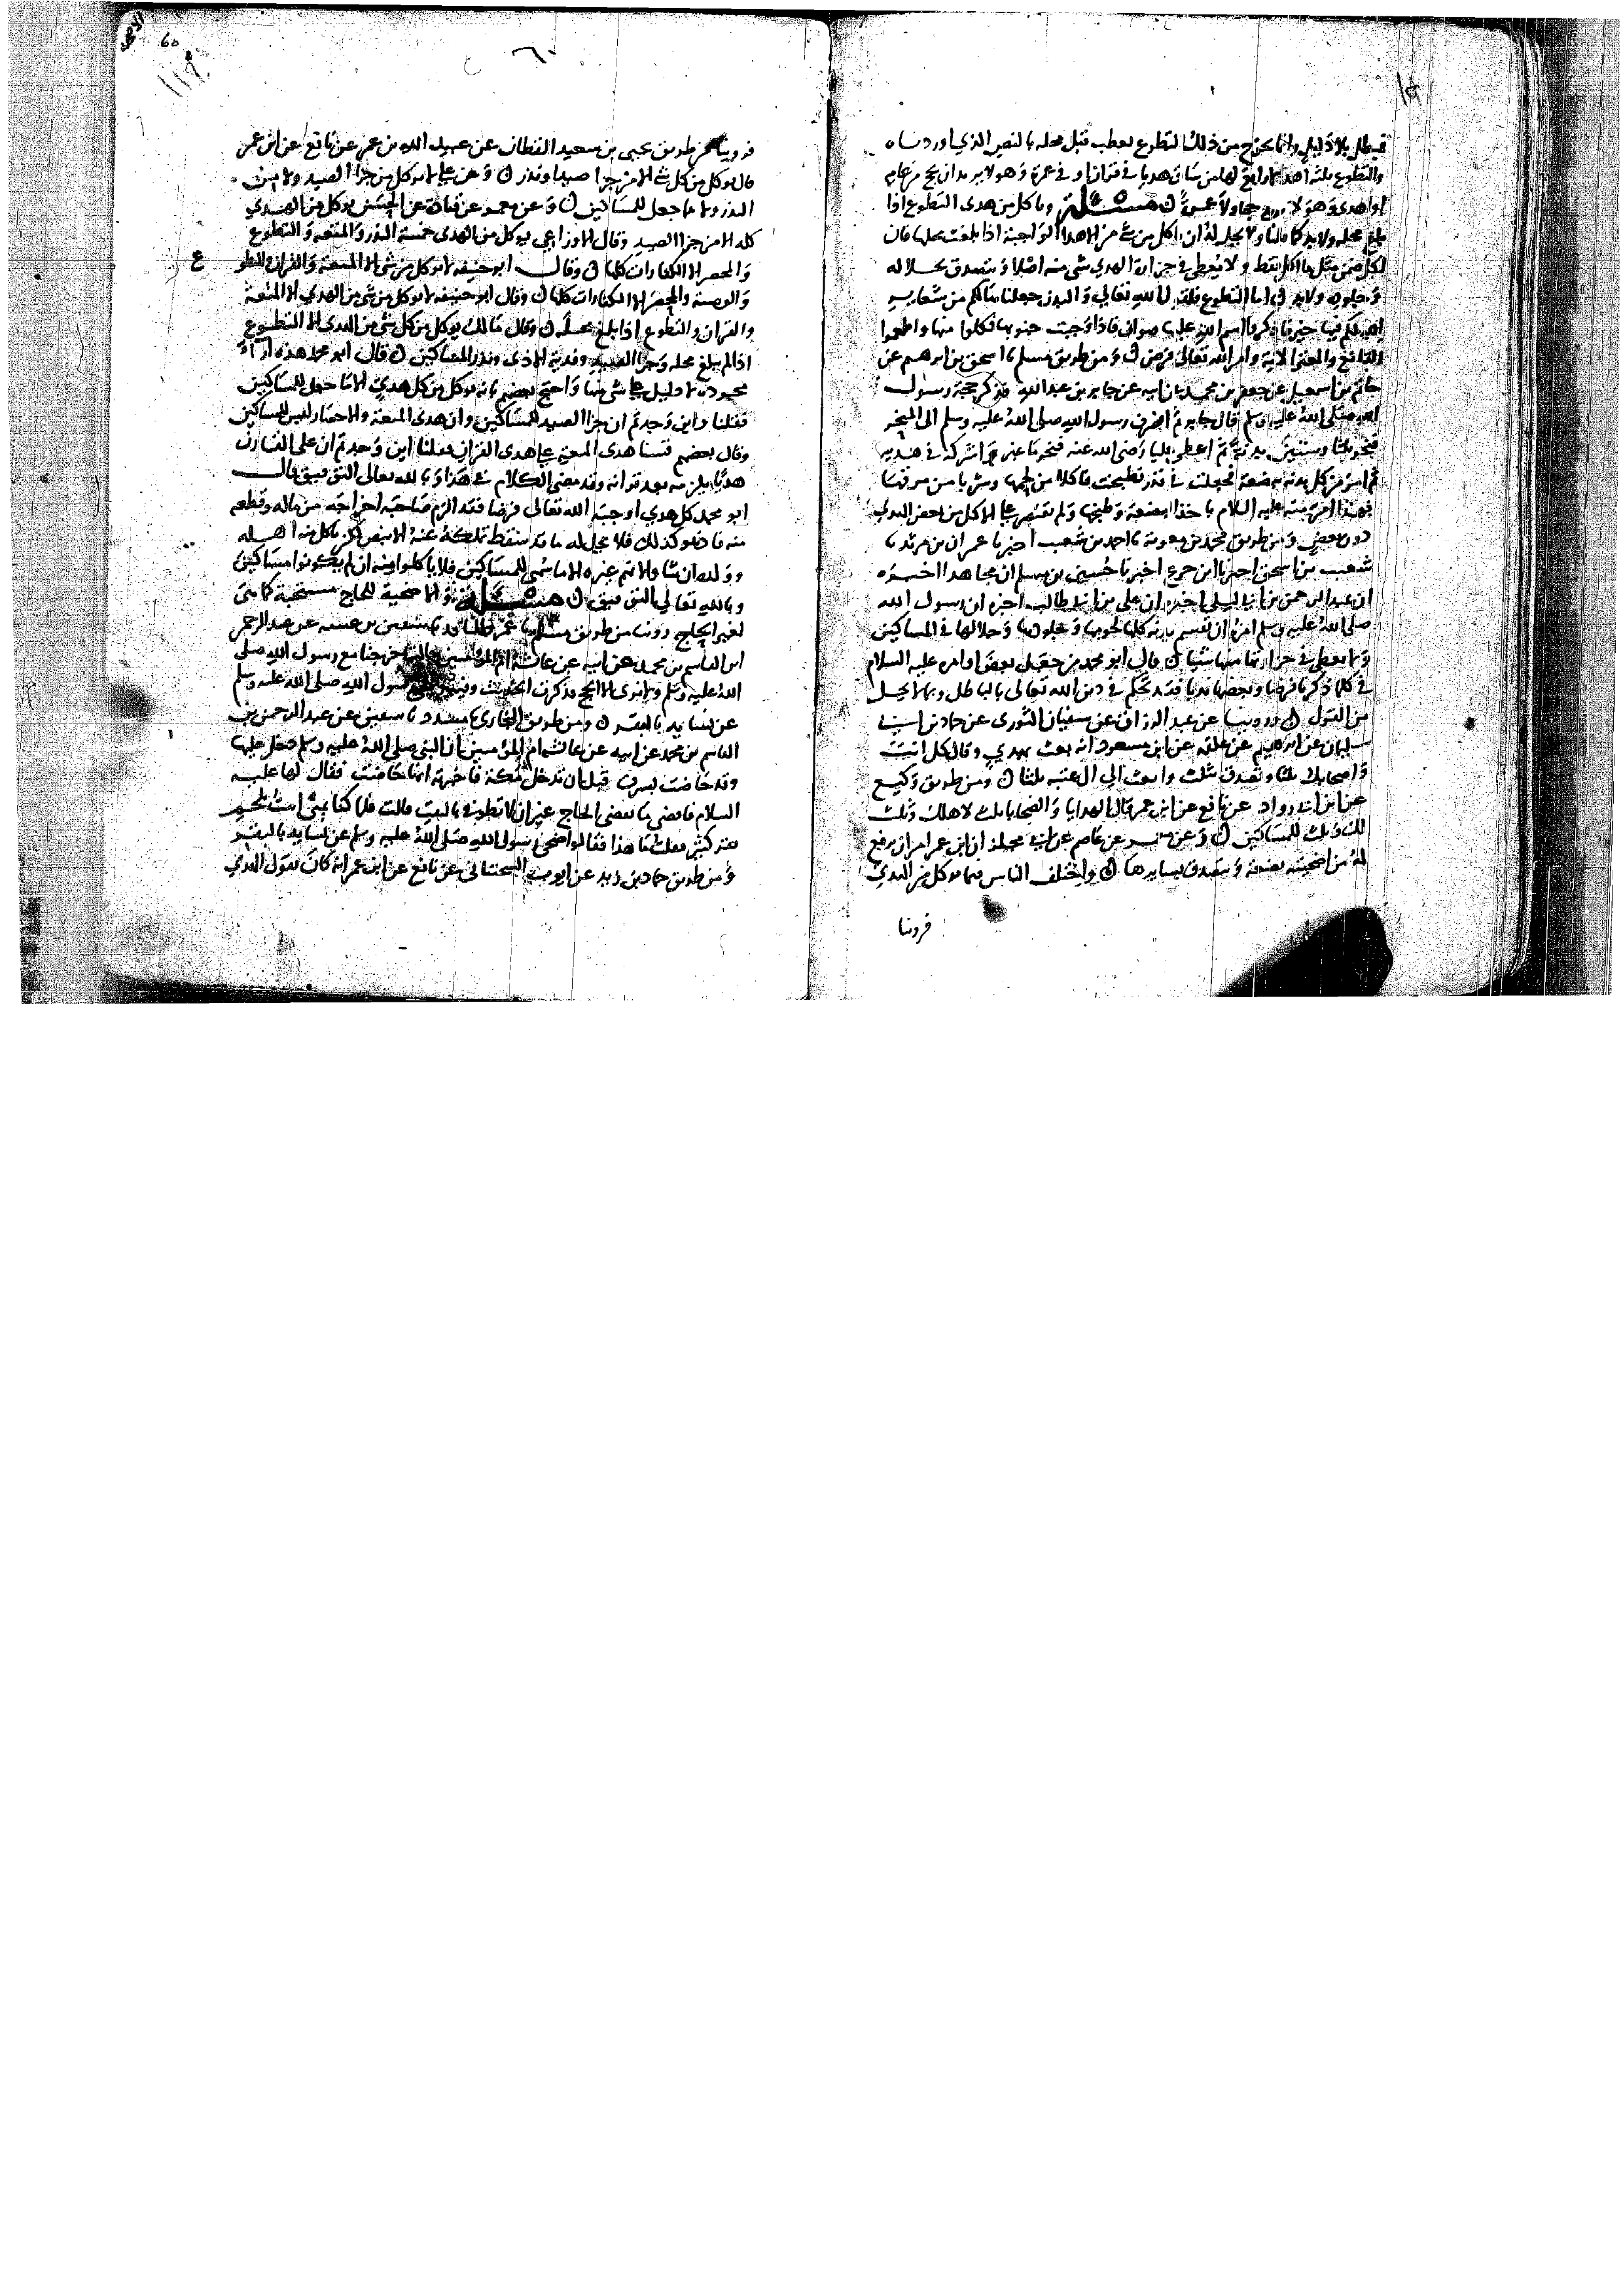 فبطل بلا دليل وانما يخرج من ذلك التطوع يعطب قبل محله بالنص الذي اوردناه
والتطوع ثلثة اهدا لا رابع لها من ساق هديا في قران او في عمرة وهو لا يريد ان يحج من عامه
او اهدى وهو لا يريد حجا ولا عمرة مسئلة وياكل من هدى التطوع اذا
بلغ محله ولا بد كما قلنا ولا يحل له ان ياكل من شي من الاهدا الواجبة اذا بلغت محلها فان
اكل ضمن مثل ما اكل فقط ولا يعطى في جزارة الهدي شي منه اصلا ويتصدق بجلاله
وجلوده ولا بد اما التطوع فلقول الله تعالى والبدن جعلناها لكم من شعاير
الله لكم فيها خير فاذكروا اسم الله عليها صواف فاذا وجبت جنوبها فكلوا منها واطعموا
القانع والمعتر الاية وامر الله تعالى فرض ومن طريق مسلم نا اسحق بن ابرهيم عن
حاتم بن اسمعيل عن جعفر بن محمد عن ابيه عن جابر بن عبد الله فذكر حجة رسول
الله صلى الله عليه وسلم قال جابر ثم انصرف رسول الله صلى الله عليه وسلم الى المنحر
فنحر ثلثا وستين بيده ثم اعطى عليا رضى الله عنه فنحر ما غبر واشركه في هديه
ثم امر من كل بدنة ببضعة فجعلت في قدر فطبخت فاكلا من لحمها وشربا من مرقها
فهذا امر منه عليه السلام باخذ البضعة وطبخها ولم يقتصر على الاكل من بعض الهدي
دون بعض ومن طريق محمد بن معوية نا احمد بن شعيب اخبرنا عمران بن يزيد نا
شعيب بن اسحق اخبرنا ابن جريج اخبرنا حسين بن مسلم ان مجاهدا اخبره
ان عبد الرحمن بن ابي ليلى اخبره ان على بن ابي طالب اخبره ان رسول الله
صلى الله عليه وسلم امره ان يقسم بدنه كلها لحومها وجلودها وجلالها في المساكين
ولا يعطى في جزارتها منها شيا قال ابو محمد من جعل بعض اوامره عليه السلام
في كلما ذكرنا فرضا وبعضها ندبا فقد تحكم في دين الله تعالى بالباطل وبما لا يحل
من القول وروينا عن عبد الرزاق عن سفيان الثوري عن حماد بن ابي
سليمان عن ابراهيم عن علقمة عن ابن مسعود انه بعث بهدي وقال كل انت
واصحابك ثلثا وتصدق بثلث وابعث الى ال عتبة بثلثا ومن طريق وكيع
عن ابن ابي رواد عن نافع عن ابن عمر قال الهدايا والضحايا ثلث لاهلك وثلث
لك وثلث للمساكين وعن عاصم عن ابي مجلز ان ابن عمر امر ان يرفع
له من اضحيته بضعة ويتصدق بسايرها واختلف الناس فيما يوكل من الهدي
فروينا
60
فروينا من طريق يحيى بن سعيد القطان عن عبيد الله بن عمر عن نافع عن ابن عمر
قال يوكل من كل شي الا من جزا صيد او نذر وعن علي لا يوكل من جزا الصيد ولا من
النذر ولا ما جعل للمساكين وعن معمر عن قتادة عن الحسن يوكل من الهدي
كله الا من جزا الصيد وقال الاوزاعي يوكل من الهدى خمسة النذر والمتعة والتطوع
والحصر الا الكفارات كلها وقال ابو حنيفة لا يوكل من شي الا المتعة والقران والتطو ع
والوصية والمحصر الا الكفارات كلها وقال ابو حنيفة لا يوكل من شي من الهدي الا المتعة
والقران والتطوع اذا بلغ محله وقال مالك يوكل من كل شي من الهدى الا التطوع
اذا لم يبلغ محله وجزا الصيد وفدية الاذى ونذر المساكين قال ابو محمد هذه ارآء
مجردة لا دليل على شي منها واحتج بعضهم بانه يوكل من كل هدي الا ما جعل للمساكين
فقلنا واين وجدتم ان جزا الصيد للمساكين وان هدى المتعة والاحصار ليس للمساكين
وقال بعضهم قسنا هدى المتعة على هدى القران فقلنا اين وجدتم ان على القارن
هديا يلزمه بعد قرانه وقد مضى الكلام في هذا وبالله تعالى التوفيق قال
ابو محمد كل هدي اوجبه الله تعالى فرضا فقد الزم صاحبه اخراجه من ماله وقطعه
منه فاذ هو كذلك فلا يحل له ما قد سقط تملكه عنه الا بنص لكن ياكل منه اهله
وولده ان شا والانهم غيره الا ما سمى للمساكين فلا ياكلوا منه ان لم يكونوا مساكين
وبالله تعالى التوفيق مسئلة والاضحية للحاج مستحبة كما هى
لغير الحاج روينا من طريق مسلم نا سفين بن عيينة عن عبد الرحمن
ابن القاسم بن محمد عن ابيه عن عائشة ام المومنين قالت خرجنا مع رسول الله صلى
الله عليه وسلم ولا نرى الا الحج فذكرت الحديث وفيه رسول الله صلى الله عليه وسلم
عن نسايه بالبقر ومن طريق البخاري نا مسدد نا سفين عن عبد الرحمن بن
القاسم بن محمد عن ابيه عن عائشة ام المومنين ان النبي صلى الله عليه وسلم دخل عليها
وقد حاضت بسرف قبل ان تدخل مكة فاخبرته انها حاضت فقال لها عليه
السلام فاقضي ما يقضى الحاج غير ان لا تطوفي بالبيت قالت فلما كنا بمنى اتيت بلحم
بقر كثير فقلت ما هذا فقالوا ضحى رسول الله صلى الله عليه وسلم عن نسايه بالبقر
ومن طريق حماد بن زيد عن ايوب السختياني عن نافع عن ابن عمر انه كان يقول الهدي